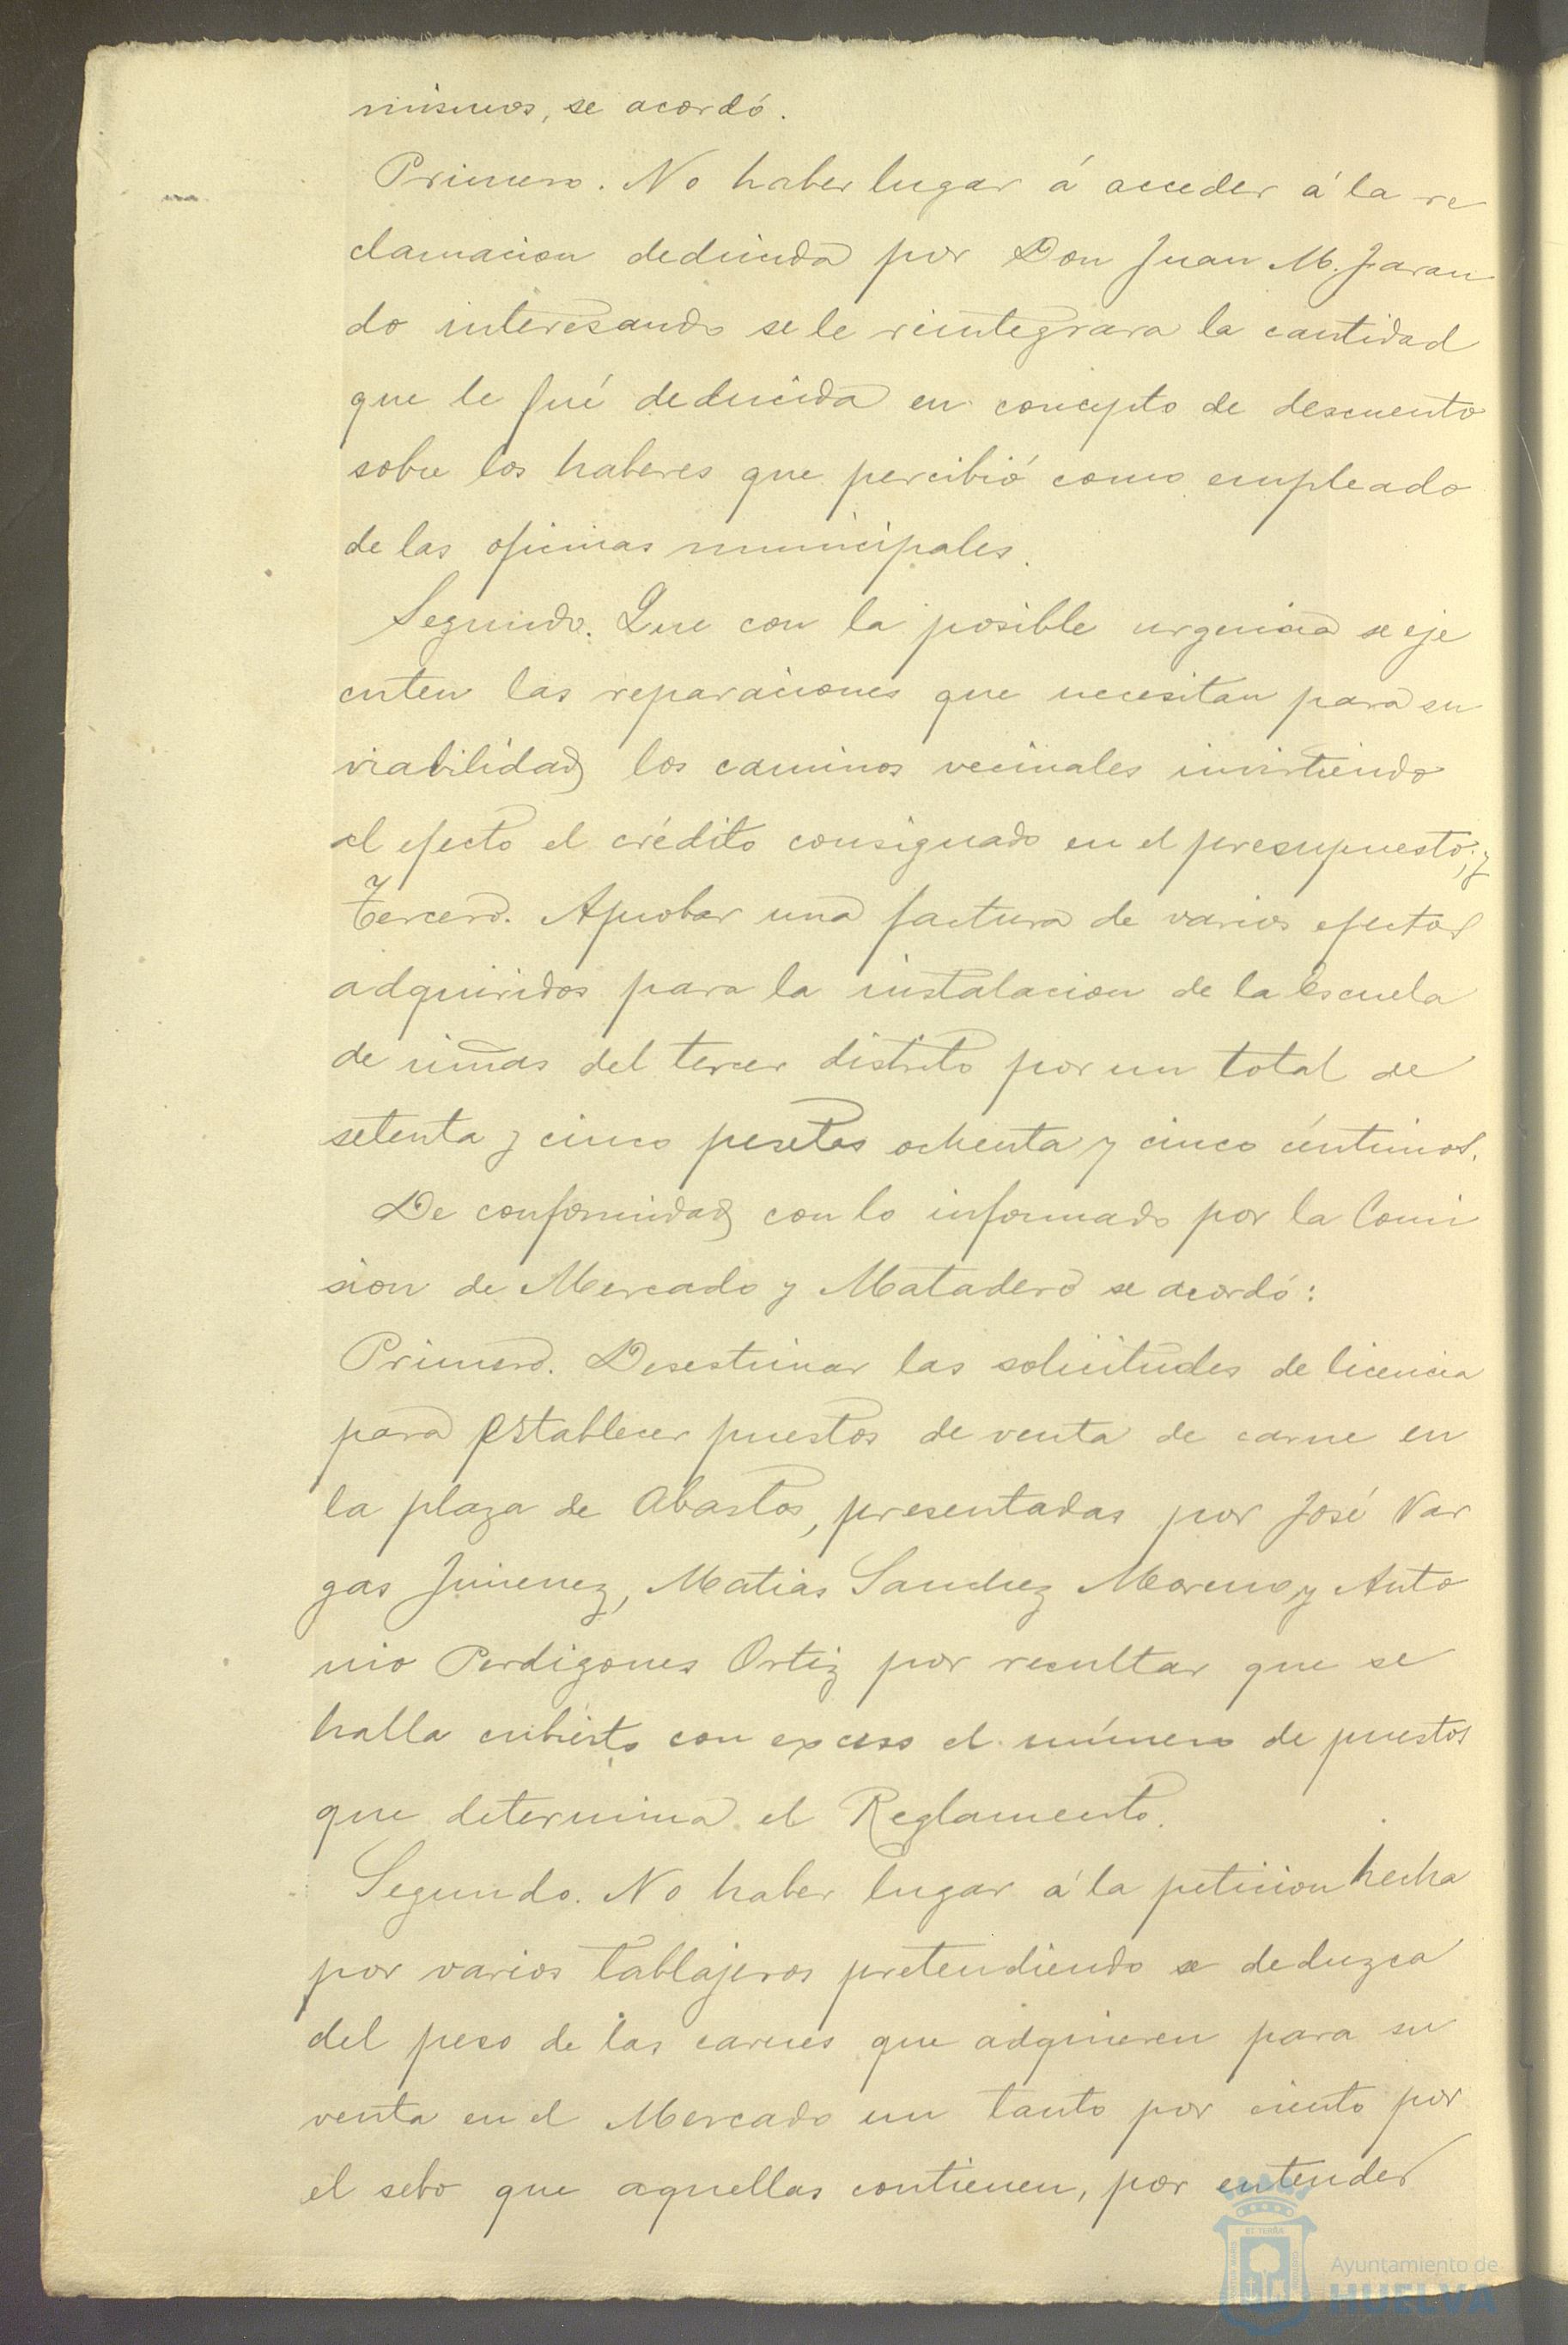 mismos, se acordó.
Primero. No haber lugar á acceder á la re
clamacion deducida por Don Juan M. Jaran
do interesando se le reintegrara la cantidad
que le fué deducida en concepto de descuento
sobre los haberes que percibió como empleado
de las oficinas municipales.
Segundo. Que con la posible urgencia se eje
cuten las reparaciones que necesitan para su
viabilidad los caminos vecinales invirtiendo
al efecto el crédito consignado en el presupuesto; y
Tercero. Aprobar una factura de varios efectos
adquiridos para la instalacion de la Escuela
de niñas del tercer distrito por un total de
setenta y cinco pesetas ochenta y cinco céntimos.
De conformidad con lo informado por la Comi
sion de Mercado y Matadero se acordó:
Primero. Desestimar las solicitudes de licencia
para establecer puestos de venta de carne en
la plaza de Abastos, presentadas por José Var
gas Jimenez, Matias Sanchez Moreno y Anto
nio Perdigones Ortiz por resultar que se
halla cubierto con exceso el número de puestos
que determina el Reglamento.
Segundo. No haber lugar á la peticion hecha
por varios tablajeros pretendiendo se deduzca
del peso de las carnes que adquieren para su
venta en el Mercado un tanto por ciento por
el sebo que aquellas contienen, por entender
Ayuntamiento de
HUELVA